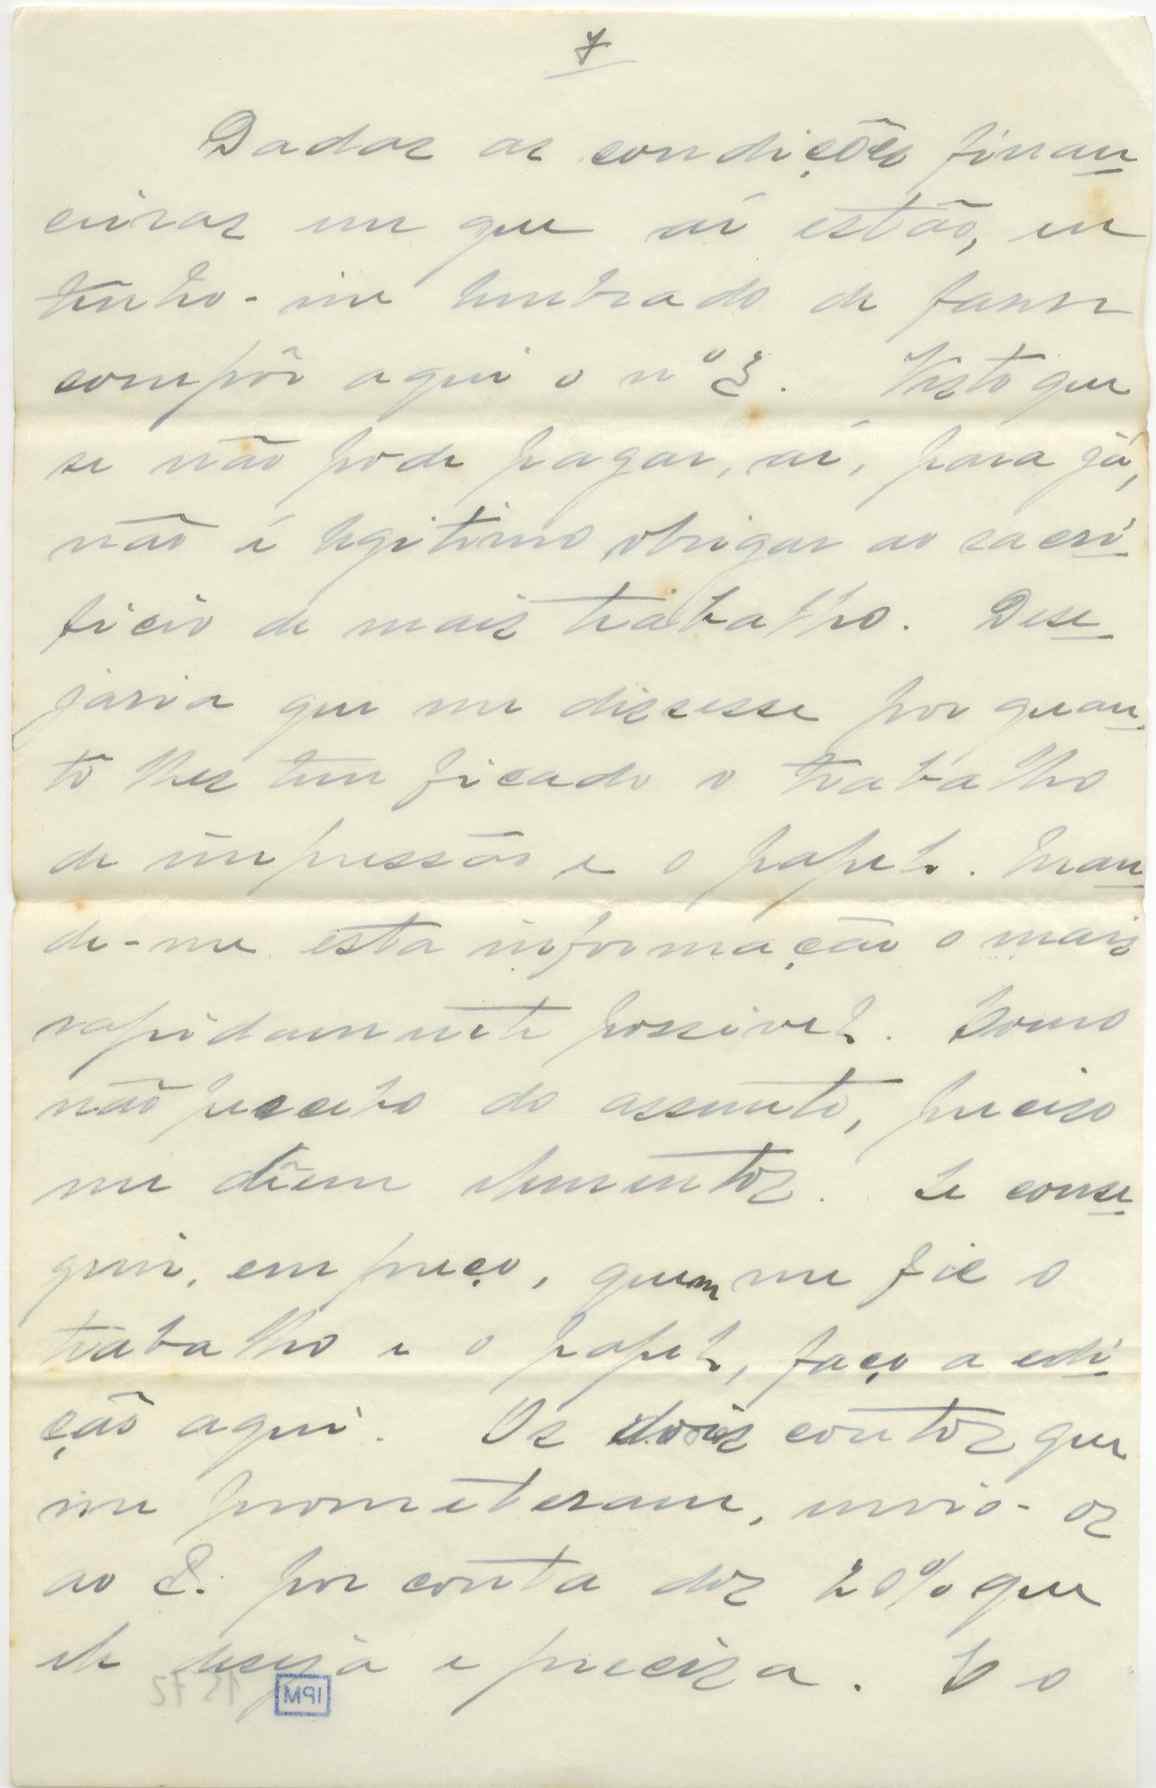 7
Dadas as condições finan
ceiras em que aí estão, eu
tenho-me lembrado de fazer
compôr aqui o nº 3. Visto que
se não pode pagar, aí, para já,
não é legitimo obrigar ao sacri
ficio de mais trabalho. Dese
jaria que me dissesse por quan
to lhes tem ficado o trabalho
de impressão e o papel. Man
de-me esta informação o mais
rapidamente possivel. Como
não percebo do assunto, preciso
me dêem elementos. Se conse
guir, em preço, quem me fie o
trabalho e o papel, faço a edi
ção aqui. Os dois contos que
me prometeram, envio-os
ao E. por conta dos 20% que
ele deseja e precisa. E o
1572
IPM